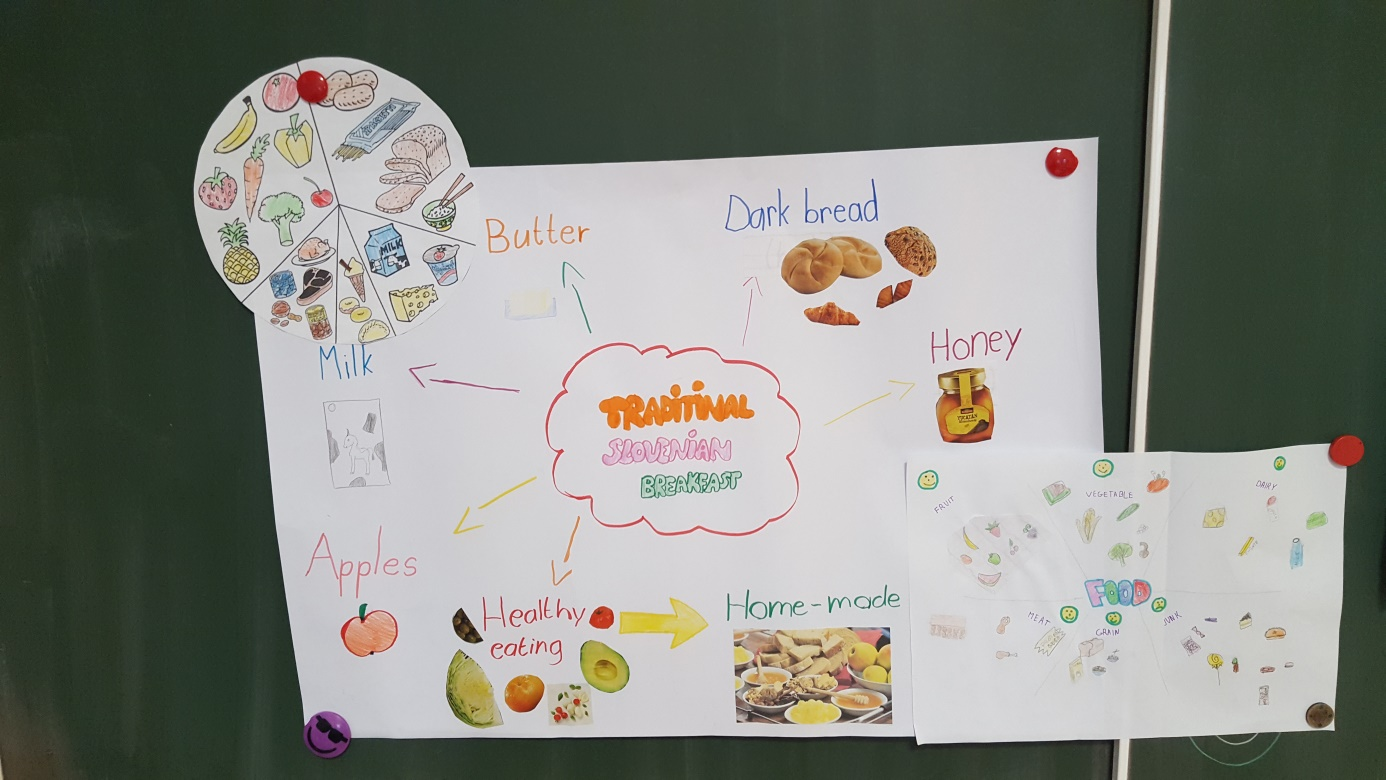 MILK
Butter
Dark bread
Milk
Honey
TRADITINAL
SLOVENIAN
BREAKFAST
Apples
Healthy
eating
Home-made
FRUIT
VEGETABLE
DAIRY
FOOD
MEAT
GRAIN
JUNK